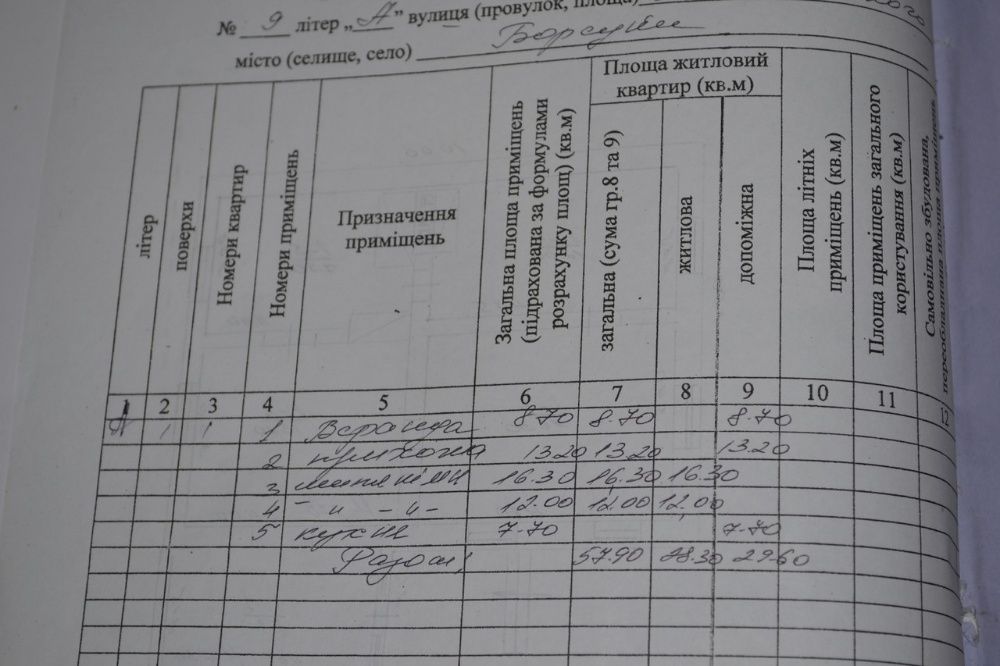 № 9 літер „А” вулиця (провулок, площа)
місто (селище, село) Борсуки
літер
поверхи
Номери квартир
Номери приміщень
Призначення
приміщень
Загальна площа приміщень
(підрахована за формулами
розрахунку площ) (кв.м)
Площа житловий
квартир (кв.м)
загальна (сума гр.8 та 9)
житлова
допоміжна
Площа літніх
приміщень (кв.м)
Площа приміщень загального
користування (кв.м)
Самовільно збудована,
переобладнана площа приміщень
1 2 3 4 5 6 7 8 9 10 11 12
А 1 1 1 Веранда 8.70 8.70 8.70
2 прихожа 13.20 13.20 13.20
3 16.30 16.30 16.30
4 – " – " – 12.00 12.00 12.00
5 кухня 7.70 7.70
Разом: 57.90 28.30 29.60